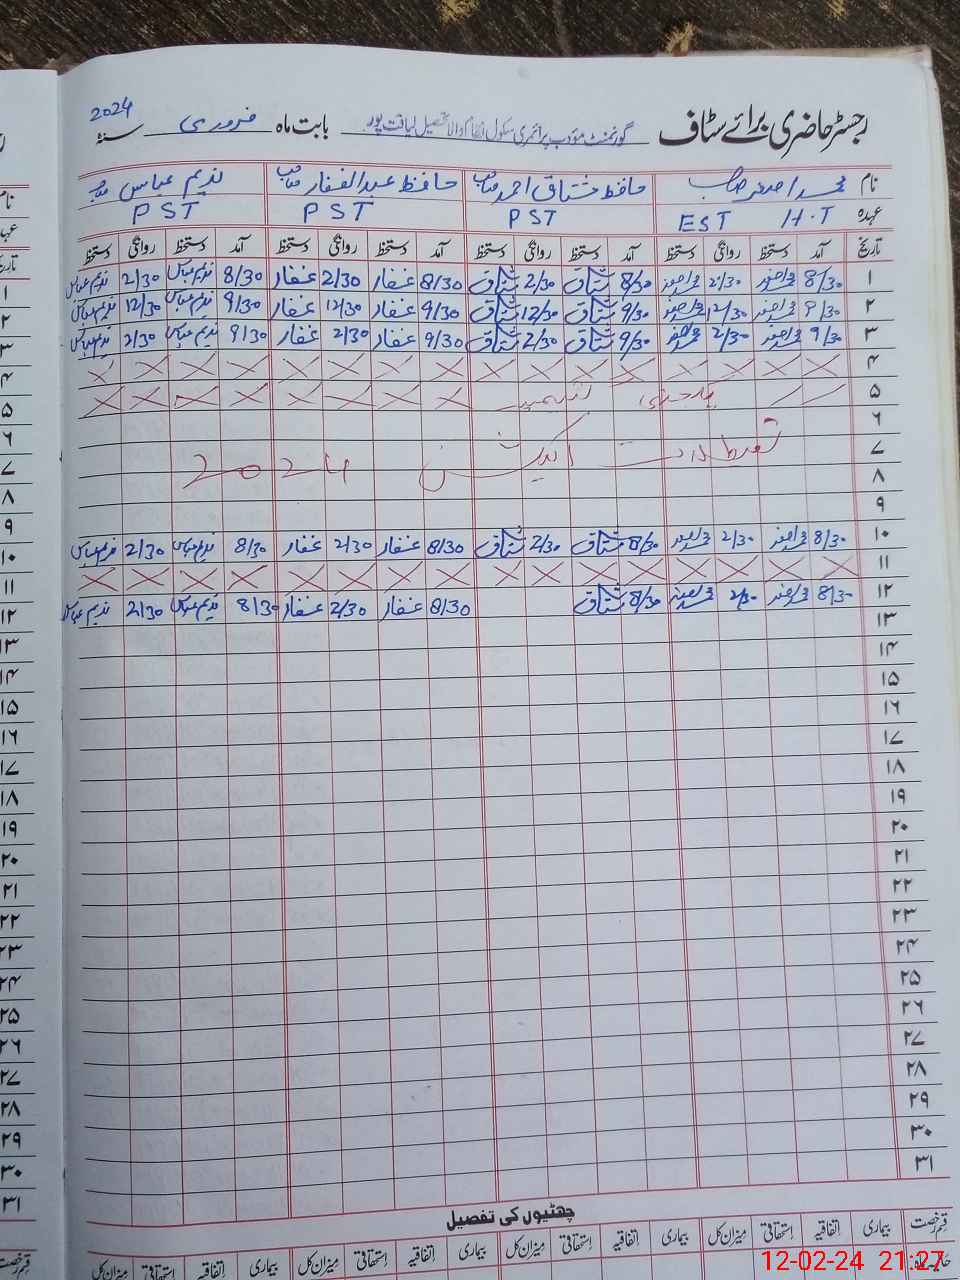 رجسٹر حاضری برائے سٹاف گورنمنٹ مؤدب پرائمری سکول تحصیل لیاقت پور بابت ماہ فروری سنہ 2024
نام محمد اصغر صاحب حافظ مشتاق احمد صاحب حافظ عبدالغفار صاحب ندیم عباس صاحب
عہدہ H.T EST PST PST PST
تاریخ آمد دستخط روانگی دستخط آمد دستخط روانگی دستخط آمد دستخط روانگی دستخط آمد دستخط روانگی دستخط
۱ 8/30 محمد اصغر 2/30 محمد اصغر 8/30 مشتاق 2/30 مشتاق 8/30 غفار 2/30 غفار 8/30 ندیم عباس 2/30 ندیم عباس
۲ 9/30 محمد اصغر 12/30 محمد اصغر 9/30 مشتاق 12/30 مشتاق 9/30 غفار 12/30 غفار 9/30 ندیم عباس 12/30 ندیم عباس
۳ 9/30 محمد اصغر 2/30 محمد اصغر 9/30 مشتاق 2/30 مشتاق 9/30 غفار 2/30 غفار 9/30 ندیم عباس 2/30 ندیم عباس
۴
۵ یکجہتی کشمیر
۶
۷ تعطیلات الیکشن 2024
۸
۹
۱۰ 8/30 محمد اصغر 2/30 محمد اصغر 8/30 مشتاق 2/30 مشتاق 8/30 غفار 2/30 غفار 8/30 ندیم عباس 2/30 ندیم عباس
۱۱
۱۲ 8/30 محمد اصغر 2/30 محمد اصغر 8/30 مشتاق 8/30 غفار 2/30 غفار 8/30 ندیم عباس 2/30 ندیم عباس
۱۳
۱۴
۱۵
۱۶
۱۷
۱۸
۱۹
۲۰
۲۱
۲۲
۲۳
۲۴
۲۵
۲۶
۲۷
۲۸
۲۹
۳۰
۳۱
چھٹیوں کی تفصیل
قسم رخصت بیماری اتفاقیہ استحقاقی میزان کل بیماری اتفاقیہ استحقاقی میزان کل بیماری اتفاقیہ استحقاقی میزان کل بیماری اتفاقیہ استحقاقی میزان کل
12-02-24 21:27